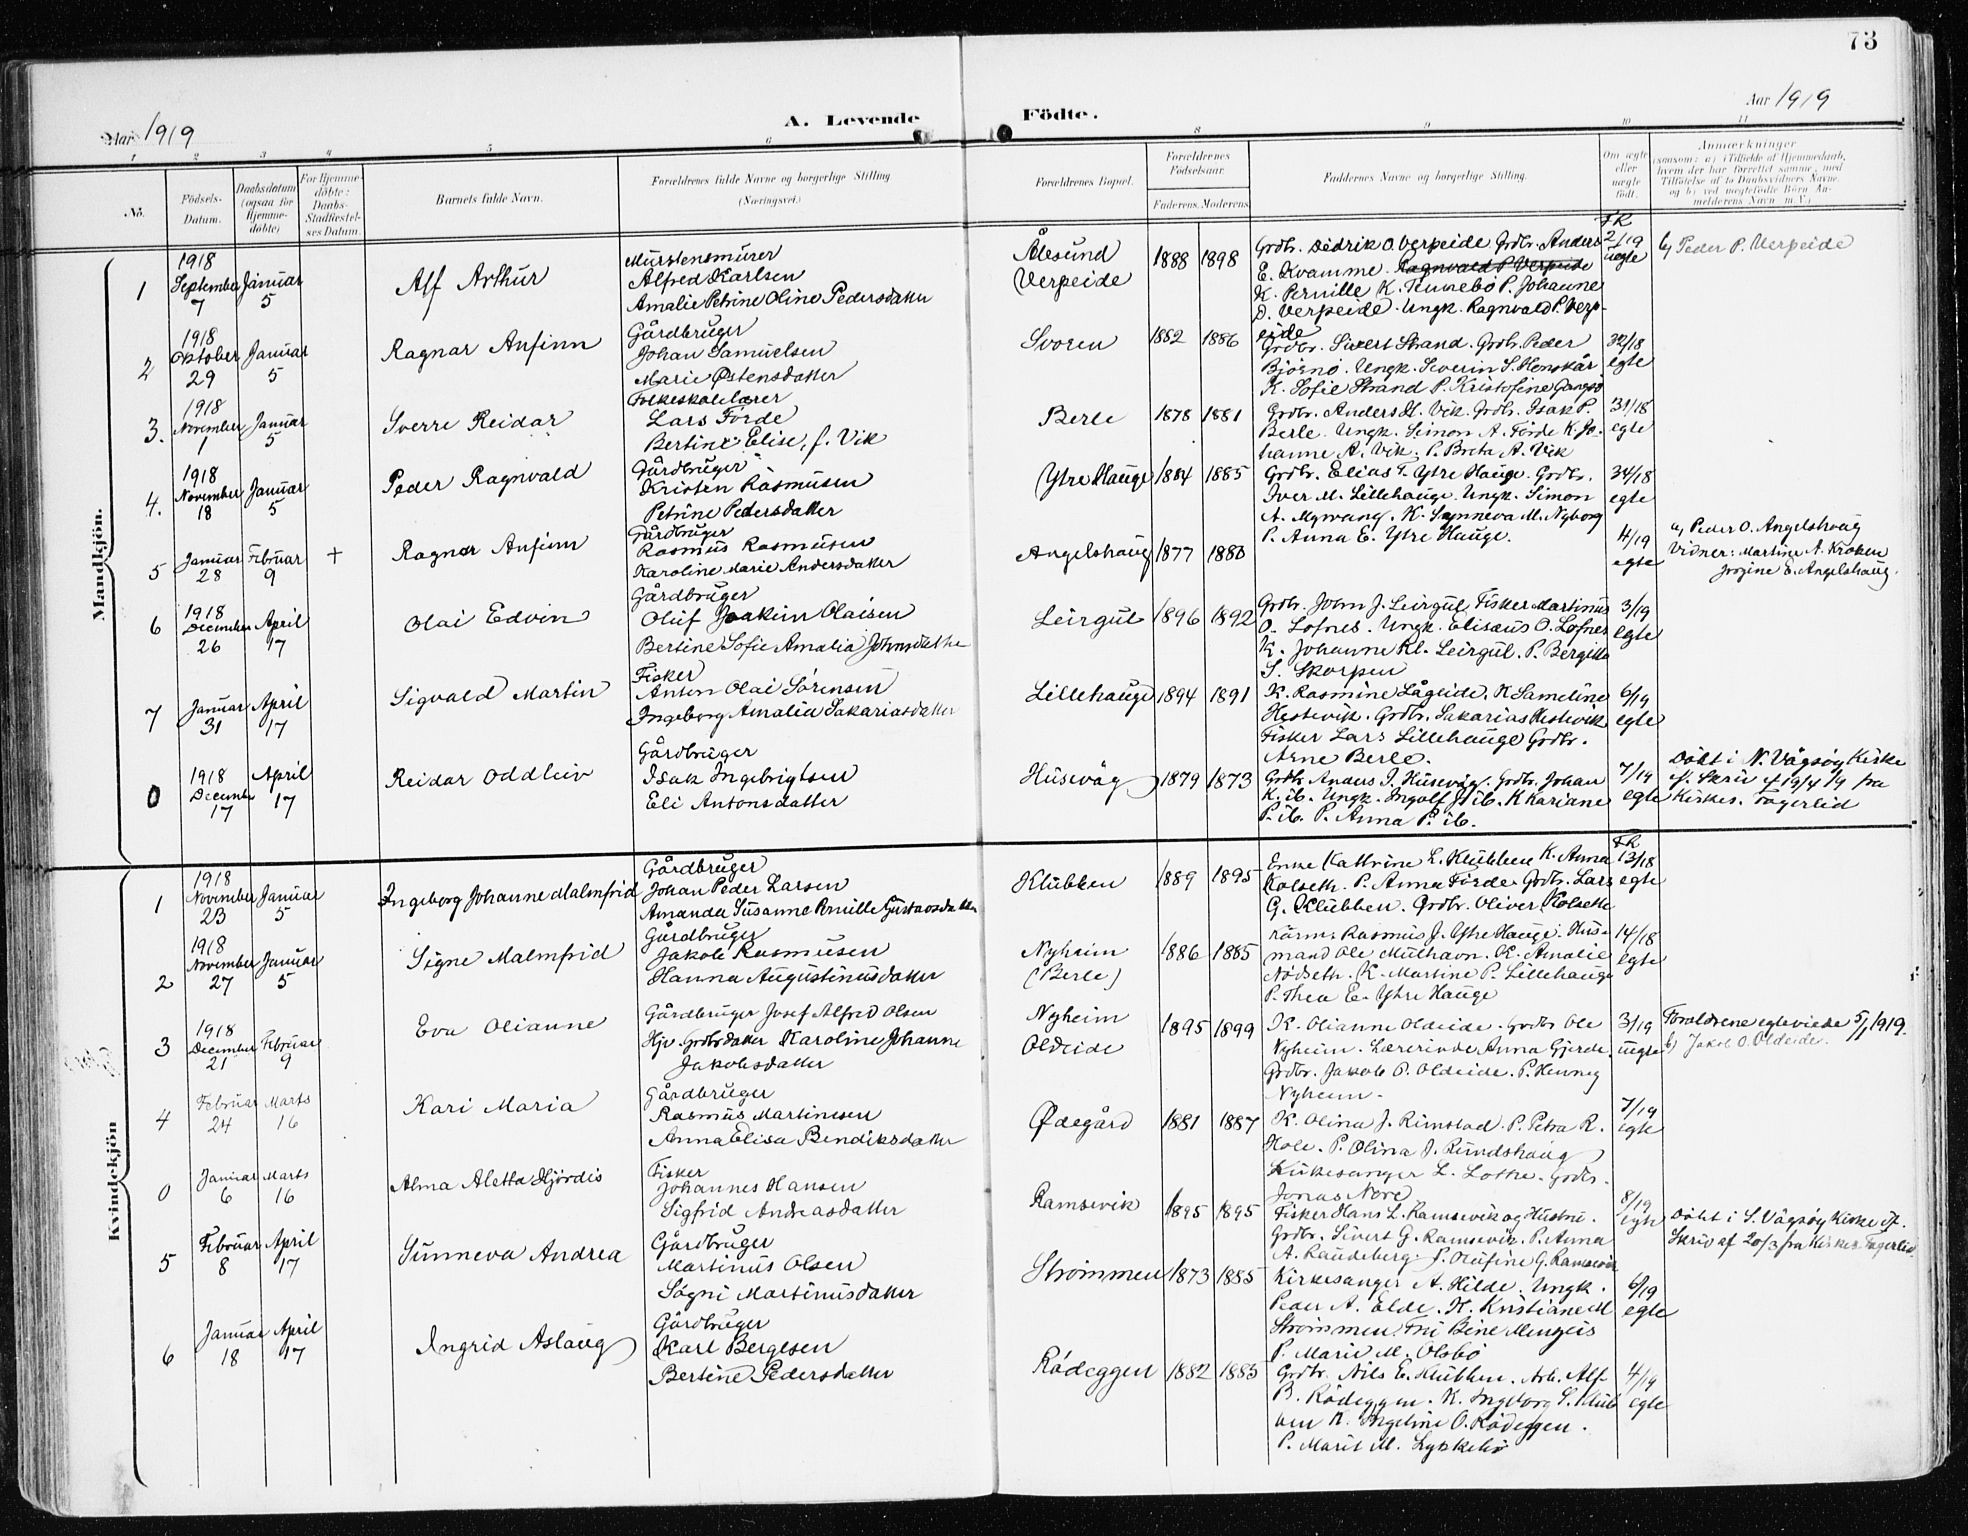 73
Aar 1919
A. Levende Födte.
Aar 1919
1 2 3 4 5 6 8 9 10 11
No.
Födsels-Datum.
Daabsdatum (ogsaa for Hjemme-döbte)
For Hjemme-döbte: Daabs-Stadfæstel-ses Datum.
Barnets fulde Navn.
Forældrenes fulde Navne og borgerlige Stilling. (Næringsvei.)
Forældrenes Bopæl.
Forældrenes Födselsaar.
Faderens. Moderens.
Faddernes Navne og borgerlige Stilling.
Om ægte eller uægte födt.
Anmærkninger (saasom: a) i Tilfælde af Hjemmedaab, hvem der har forrettet samme, med Tilföielse af to Daabsvidners Navne, og b) ved uægtefödte Börn Anmelderens Navn m. V.)
Mandkjön.
1
1918 September 7
Januar 5
Alf Arthur
Murstensmurer
Alfred Karlsen
Amalie Petrine Oline Pedersdatter
Ålesund
Verpeide
1888 1898
Grdbr. Didrik O. Verpeide Grdbr. Anders
E. Kvamme. Ragnvald P. Verpeide
K. Pernille K. Tennebö P. Johanne
D. Verpeide. Ungk. Ragnvald P. Verp-
eide
FR 2/19 uegte
b) Peder P. Verpeide
2
1918 Oktober 29
Januar 5
Ragnar Anfinn
Gårdbruger
Johan Samuelsen
Marie Østensdatter
Svoren
1882 1886
Grdbr. Sivert Strand. Grdb. Peder
Björnö. Ungk. Severin S. Henskår
K. Sofie Strand P. Kristofine Gangsö
32/18 egte
3.
1918 November 1
Januar 5
Sverre Reidar
Folkeskolelærer
Lars Förde
Bertine Elise, f. Vik
Berle
1878 1881
Grdbr. Anders H. Vik. Grdb. Isak P.
Berle. Ungk. Simon A. Förde K. Jo-
hanne A. Vik. P. Brita A. Vik
31/18 egte
4.
1918 November 18
Januar 5
Peder Ragnvald
Gårdbruger
Kristen Rasmusen
Petrine Pedersdatter
Ytre Hauge
1884 1885
Grdbr. Elias T. Ytre Hauge. Grdbr.
Iver M. Lillehauge. Ungk. Simon
A. Myrvang. K. Synneva M. Nyborg
P. Anna E. Ytre Hauge.
34/18 egte
5
Januar 28
Februar 9
+
Ragnar Anfinn
Gårdbruger
Rasmus Rasmusen
Karoline Marie Andersdatter
Angelshaug
1877 1880
4/19 egte
a) Peder O. Angelshaug
Vidner: Martine A. Kroken
Jorgine E. Angelshaug.
6
1918 December 26
April 17
Olai Edvin
Gårdbruger
Oluf Joakim Olaisen
Bertine Sofie Amalia Johnsdatter
Leirgul
1896 1892
Grdbr. John J. Leirgul Fisker Martinus
O. Lofnes. Ungk. Elisæus O. Lofnes
K. Johanne Kl. Leirgul. P. Bergitte
S. Skorpen
3/19 egte
7
Januar 31
April 17
Sigvald Martin
Fisker
Anton Olai Sörensen
Ingeborg Amalia Sakariasdatter
Lillehauge
1894 1891
K. Rasmine Lågeide. K. Sameline
Hestevik. Grdbr. Sakarias Hestevik
Fisker Lars Lillehauge Grdbr.
Arne Berle.
6/19 egte
0
1918 December 17
April 17
Reidar Oddleiv
Gårdbruger
Isak Ingebrigtsen
Eli Antonsdatter
Husevåg
1879 1873
Grdbr. Anders I. Husevåg. Grdb. Johan
K. ib. Ungk. Ingolf J. ib. K. Kariane
P. ib. P. Anna P. ib.
7/19 egte
Döbt i N. Vågsöy Kirke
if. Skriv af 19/4 19 fra
Kirkes. Fagerlid
Kvindekjön
1
1918 November 23
Januar 5
Ingeborg Johanne Malmfrid
Gårdbruger
Johan Peder Larsen
Amanda Susanne Pernille Gustavsdatter
Klubben
1889 1895
Enke Kathrine L. Klubben K. Anna
Kolseth. P. Anna Förde Grdb. Lars
G. Klubben. Grdbr. Oliver Kolseth
FR 13/18 egte
2
1918 November 27
Januar 5
Signe Malmfrid
Gårdbruger
Jakob Rasmusen
Hanna Augustinusdatter
Nyheim
(Berle)
1886 1885
Rasmus J. Ytre Hauge. Hus-
mand Ole Multhavn. K. Amalie
Nödseth. K. Martine P. Lillehauge
P. Thea E. Ytre Hauge
14/18 egte
3
1918 December 21
Februar 9
Eva Olianne
Gårdbruger Josef Alfred Olsen
Hjv. Grdbrdatter Karoline Johanne
Jakobsdatter
Nyheim
Oldeide
1895 1899
K. Olianne Oldeide. Grdbr. Ole
Nyheim. Lærerinde Anna Gjerde.
Grdbr. Jakob P. Oldeide. P. Henny
Nyheim.
3/19 uegte
Foreldrene egteviede 5/1 1919.
b) Jakob O. Oldeide.
4
Februar 24
Marts 16
Kari Maria
Gårdbruger
Rasmus Martinusen
Anna Elisa Bendiksdatter
Ødegård
1881 1887
K. Olina J. Rimstad. P. Petra R.
Hole. P. Olina J. Rundshaug
Kirkesanger L. Lothe. Grdbr.
Jonas Nore
7/19 egte
0
Januar 6
Marts 16
Alma Aletta Hjördis
Fisker
Johannes Hansen
Sigfrid Andreasdatter
Ramsevik
1895 1895
Fisker Hans L. Ramsevik og Hustru.
Grdbr. Sivert G. Ramsevik. P. Anna
A. Raudeberg. P. Olufine G. Ramsevik
8/19 egte
Döbt i S. Vågsöy Kirke if.
Skriv af 20/3 fra Kirkes. Fagerlid.
5
Februar 8
April 17
Sunneva Andrea
Gårdbruger
Martinus Olsen
Sögni Martinusdatter
Strömmen
1873 1885
Kirkesanger A. Hilde. Ungk.
Peder A. Elde. K. Kristiane M
Strömmen. Fru Bine Mengeis
P. Marie M. Olsbö
6/19 egte
6
Januar 18
April 17
Ingrid Aslaug
Gårdbruger
Karl Bergesen
Bertine Pedersdatter
Rödeggen
1882 1885
Grdbr. Nils E. Klubben. Arb. Alf
B. Rödeggen. K. Ingeborg S. Klub
ben K. Ingeline O. Rödeggen.
P. Marit M. Lykkebö
4/19 egte